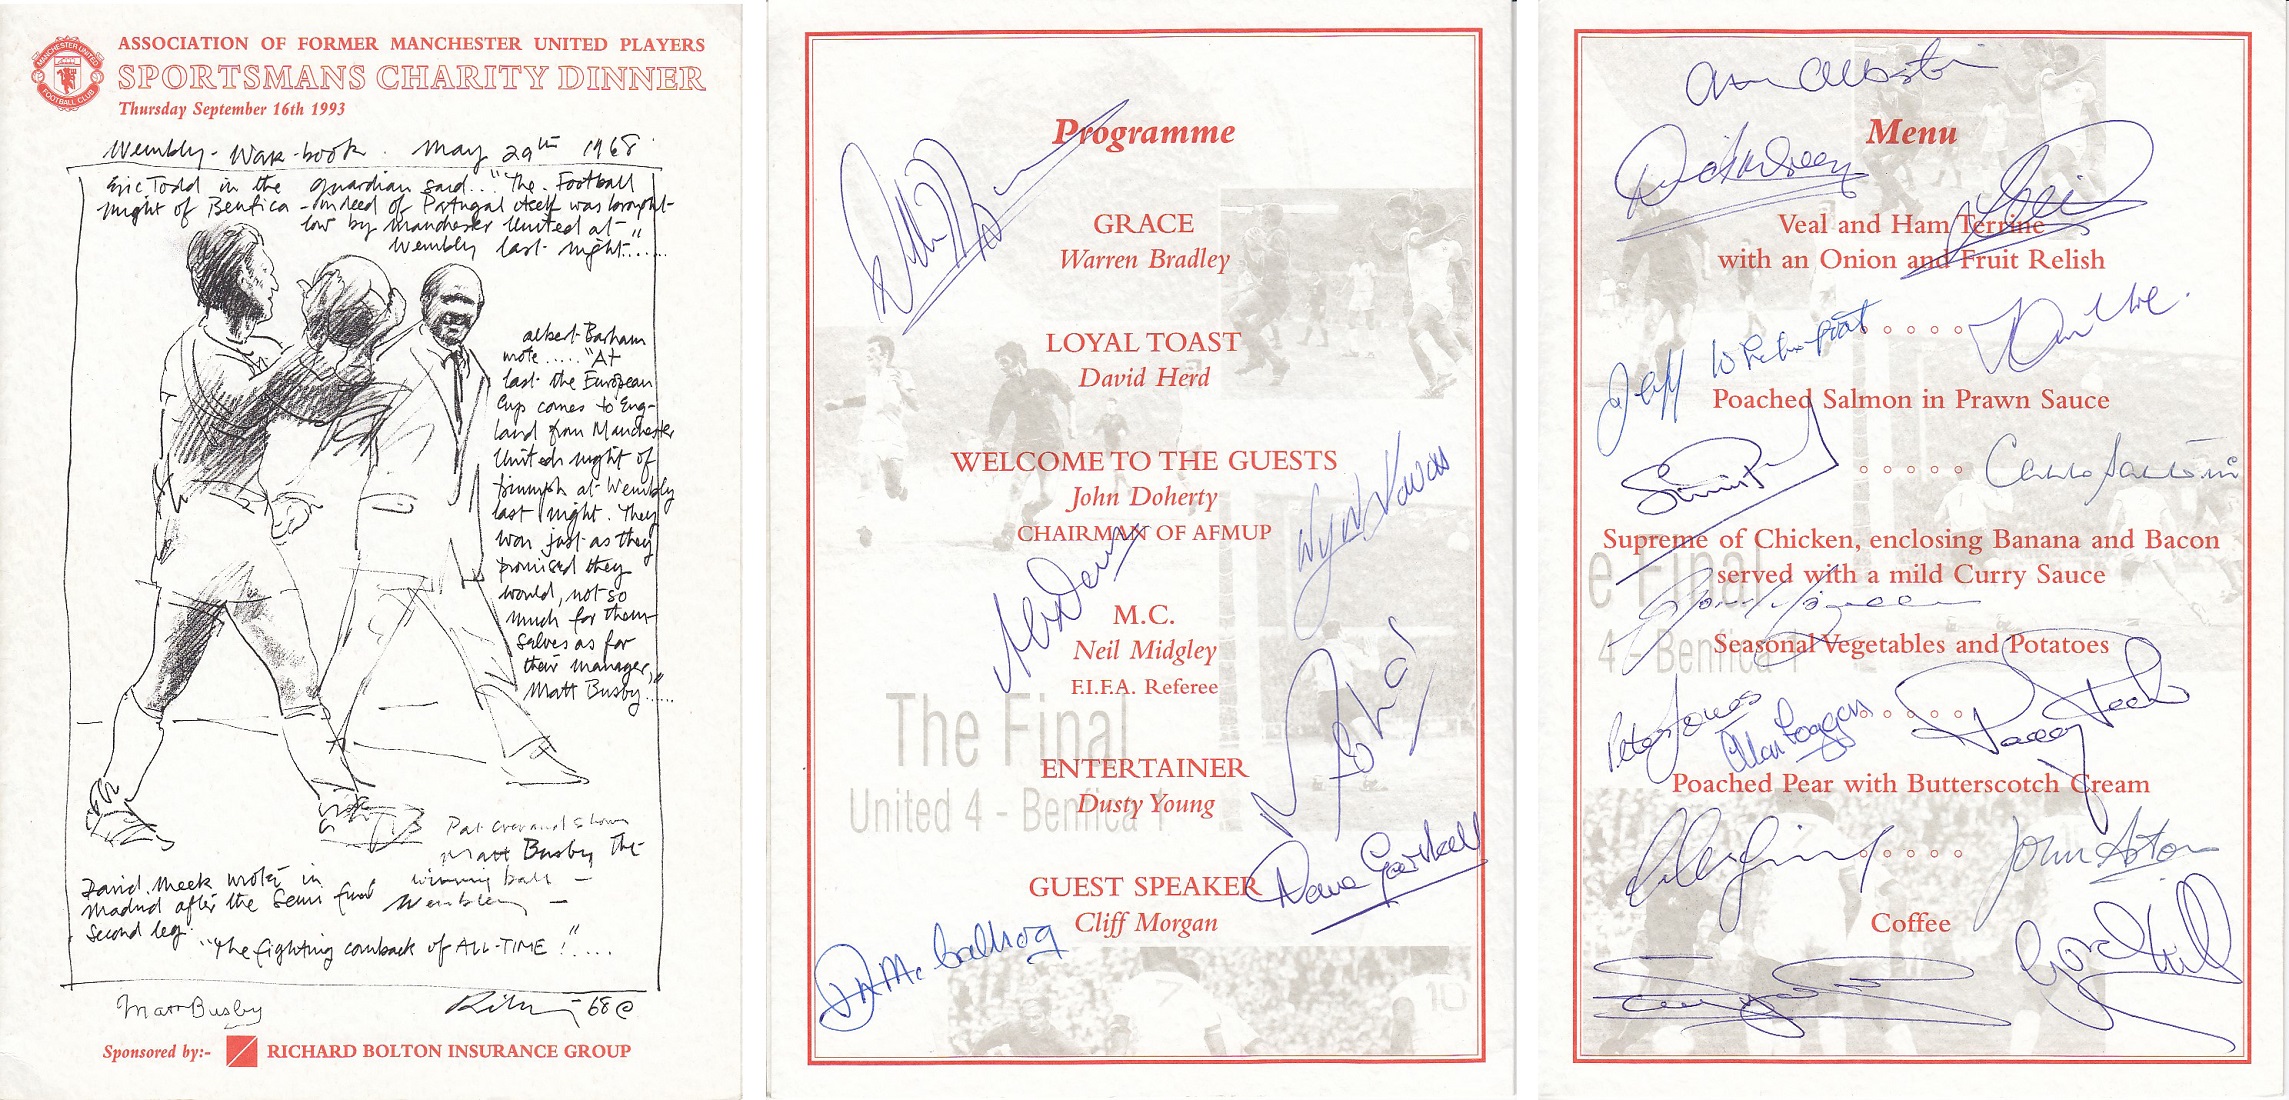 ASSOCIATION OF FORMER MANCHESTER UNITED PLAYERS
SPORTSMANS CHARITY DINNER
Thursday September 16th 1993
MANCHESTER UNITED
FOOTBALL CLUB
Wembly - War-book. May 29th 1968
Eric Todd in the guardian said.. "The Football
might of Benfica - indeed of Portugal itself was brought
low by Manchester United at
Wembly last night."......
albert Barham
wrote ..... "At
last the European
Cup comes to Eng-
land from Manchester
Uniteds night of
triumph at Wembly
last night. They
won just as they
promised they
would, not so
much for them-
selves as for
their manager,
Matt Busby.....
Pat Crerand shows
Matt Busby the
winning ball -
Wembley -
David Meek wrote in
Madrid after the semi final
second leg.
"The fighting comback of ALL-TIME!".....
Matt Busby
68 ©
Sponsored by:- RICHARD BOLTON INSURANCE GROUP
Programme
GRACE
Warren Bradley
LOYAL TOAST
David Herd
WELCOME TO THE GUESTS
John Doherty
CHAIRMAN OF AFMUP
M.C.
Neil Midgley
F.I.F.A. Referee
The Final
United 4 - Benfica 1
ENTERTAINER
Dusty Young
GUEST SPEAKER
Cliff Morgan
Alex Dawson
Wyn Davies
Dave Gaskell
10
Menu
Veal and Ham Terrine
with an Onion and Fruit Relish
Jeff Whitefoot
Poached Salmon in Prawn Sauce
Carlo Sartori
Supreme of Chicken, enclosing Banana and Bacon
served with a mild Curry Sauce
e Final
4 - Benfica 1
Seasonal Vegetables and Potatoes
Peter Jones
Paddy
Poached Pear with Butterscotch Cream
John Aston
Coffee
Gord Hill